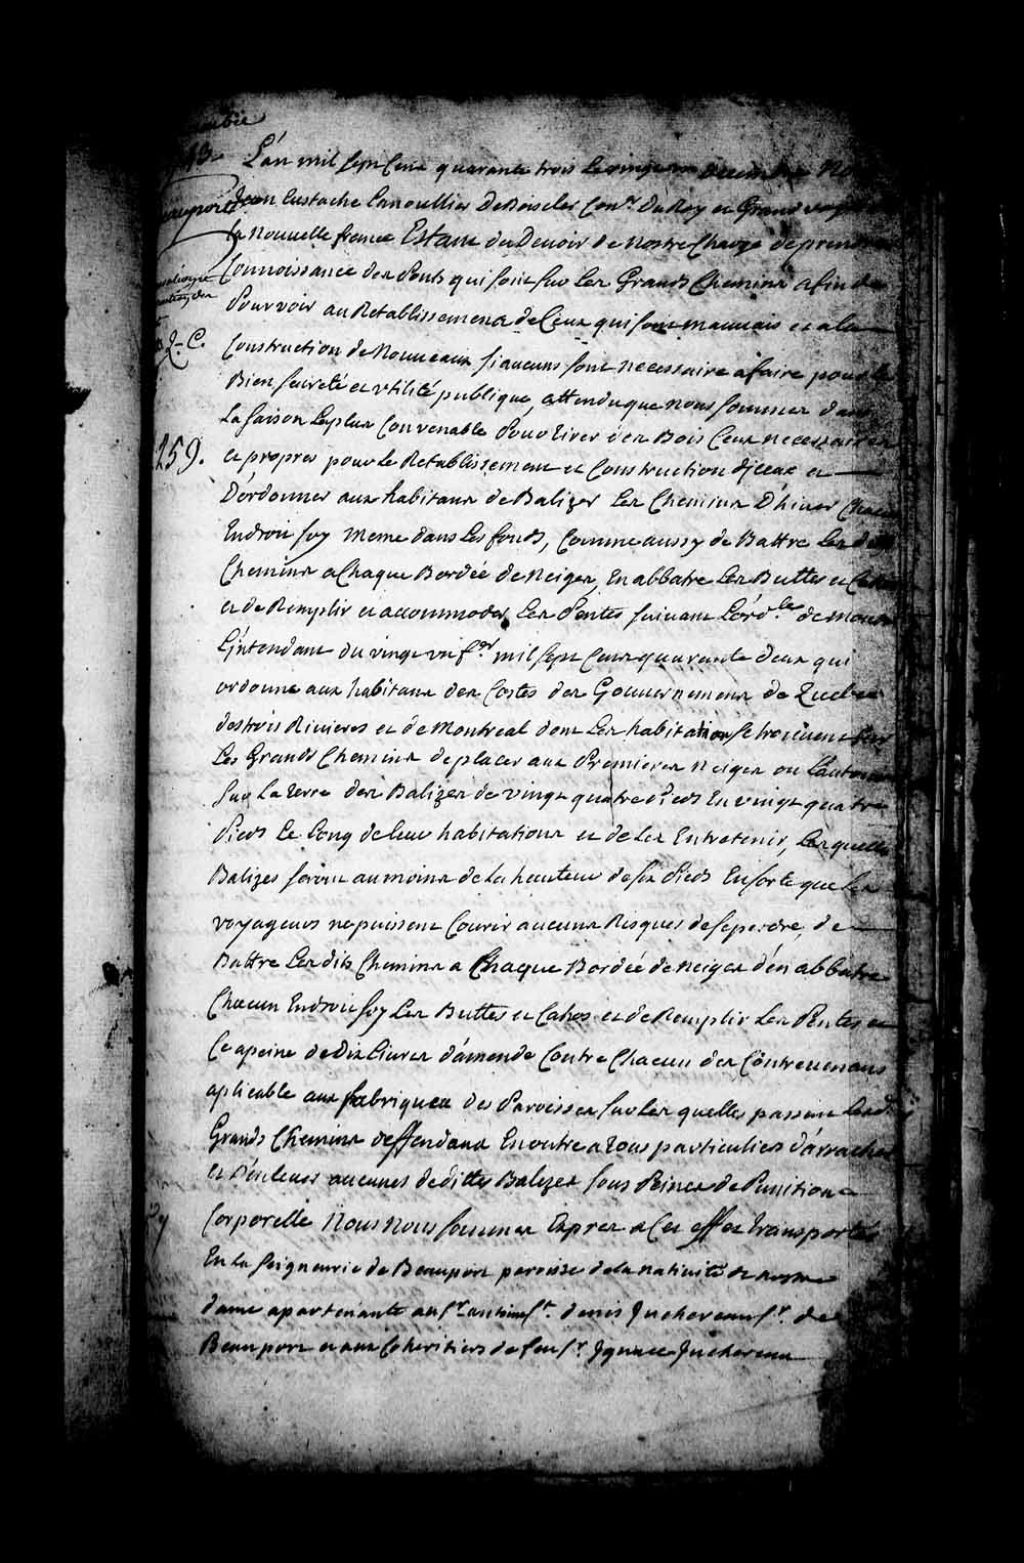 L'an mil sept Cent quarante trois Le vingt decembre
Jean Eustache Lanoullier DeBoisclerc Con.er Du Roy et Grand voyer
la Nouvelle france Estant du Devoir de nostre Charge de prendre
Connoissance des Ponts qui sont sur Les Grands Chemins afin de
Pourvoir au Retablissement de Ceux qui sont mauvais et a la
2- C.
Construction de Nouveaux si aucuns sont necessaire a faire pour le
Bien sureté et Utilité publique, attendu que nous sommes dans
La saison Le plus Convenable Pour tirer des Bois Ceux necessaires
259.
et propres pour le Retablissement et Construction d'iceux et
D'ordonner aux habitans de Balizer Les Chemins D'hiver Chacun
Endroit soy meme dans Les fonds, Comme aussy de Battre Les dits
Chemins a Chaque Bordée de Neiges, En abbatre Les Buttes et Cahos
et de Remplir et accommoder Les Pentes suivant L'ord.ce de Monsr
L'intendant du vingt un f.er mil sept Cent quarante deux qui
ordonne aux habitans des Costes des Gouvernemens de Quebec
des trois Rivieres et de Montreal dont Les habitations se trouvent sur
Les Grands Chemins de placer aux Premieres neiges ou L'automne
Sur La terre des Balizes de vingt quatre Pieds En vingt quatre
Pieds Le Long de leur habitations et de Les Entretenir, Les quelles
Balizes seront au moins de La hauteur de six Pieds En sorte que Les
voyageurs ne puissent Courir aucuns Risques de se perdre, de
Battre Les dits Chemins a Chaque Bordée de Neiges d'en abbatre
Chacun Endroit soy Les Buttes et Cahos et de Remplir Les Pentes et
Ce a peine de Dix Livres d'amende Contre Chacun des Contrevenans
aplicable aux fabriques des Paroisses sur Les quelles passent Lesd.
Grands Chemins deffendant En outre a Tous particuliers d'arracher
et D'enlever aucunes dedittes Balizes sous Peines de Punition
Corporelle Nous nous sommes Exprès a Cet effet transportés
En la seigneurie de Beauport paroisse de la nativité de nostre
dame apartenante au Sr. antoine Juchereau Sr. de
Beauport et aux Coheritiers de feu Sr. Ignace Juchereau